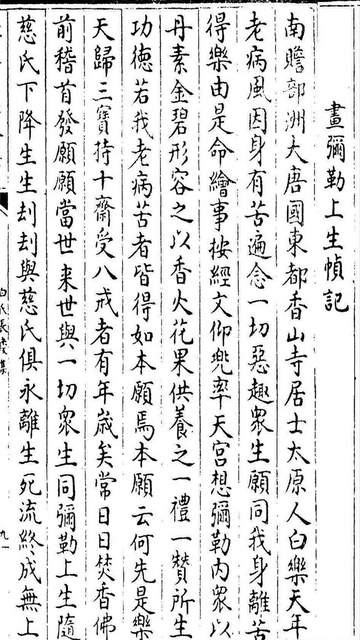 畫彌勒上生幀記
南贍部洲大唐國東都香山寺居士太原人白樂天年
老病風因身有苦遍念一切惡趣衆生願同我身離苦
得樂由是命繪事按經文仰兜率天宮想彌勒內衆以
丹素金碧形容之以香火花果供養之一禮一贊所生
功德若我老病苦者皆得如本願焉本願云何先是樂
天歸三寶持十齋受八戒者有年歲矣常日日焚香佛
前稽首發願願當世来世與一切衆生同彌勒上生隨
慈氏下降生生刦刦與慈氏俱永離生死流終成無上